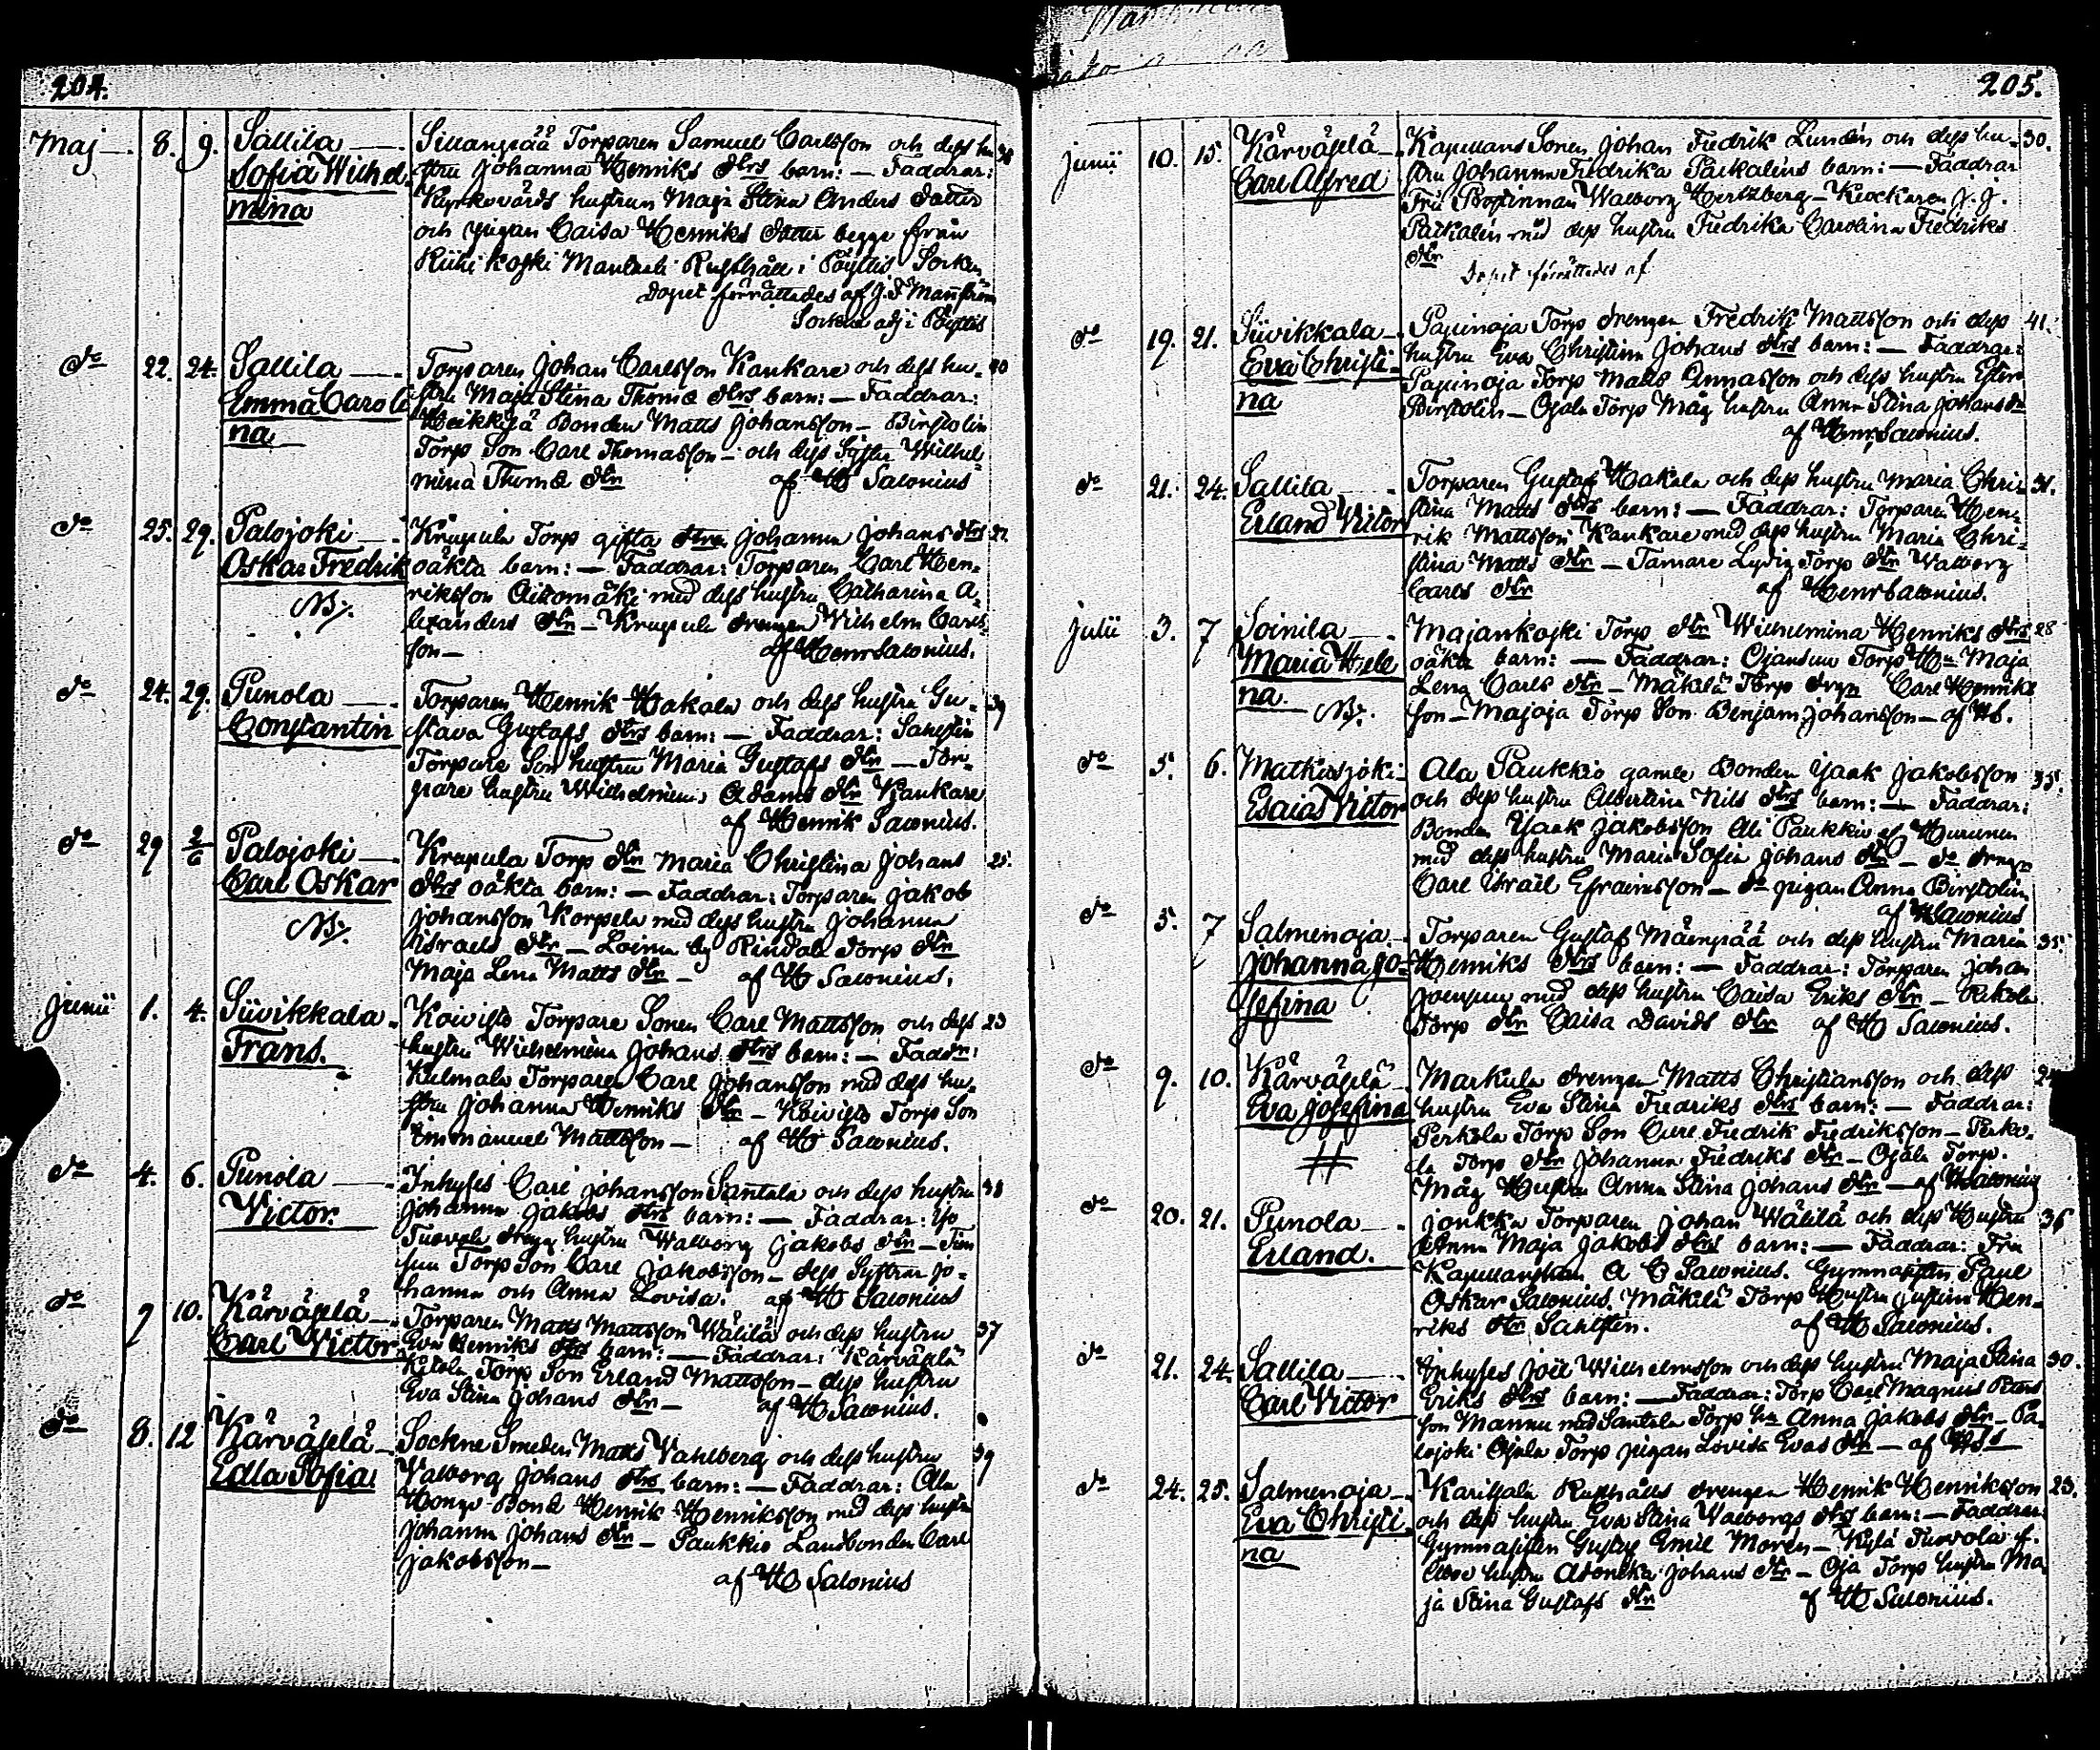 204.
Maj 8. 9. Sallila
Sillanpää Torparen Samuel Carlsson och dess hu- 38
Sofia Wilhel-
stru Johanna Henriks dtrs barn: — Faddrar:
mina
Kyrkovärds hustrun Maja Stina Anders dotter
och pigan Caisa Henriks dotter begge från
Riihikoski Rusthåll i Pöyttis Socken
dopet förrättades af J. F. Manström
Sockne adj i Pöyttis
do 22. 24. Sallila
Torparen Johan Carlsson Kankare och dess hu- 40
Emma Caroli
stru Maja Stina Thomæ dtrs barn: — Faddrar:
na
Heikkilä Bonden Matts Johansson — Birstolin
Torp Son Carl Thomasson — och dess Syster Wilhel-
mina Thomæ dtr af H Salonius
do 25. 29. Palojoki
Krapula Torp gifta dtrn Johanna Johans dtrs 27.
Oskar Fredrik
oäkta barn: — Faddrar: Torparen Carl Hen-
NB.
riksson Aitomäki med dess hustru Catharina A-
lexanders dtr — Krapula drengen Wilhelm Carls-
son — af Henr Salonius.
do 24. 29. Punola
Torparen Henrik Hakala och dess hustru Gu- 39
Constantin
stava Gustafs dtrs barn: — Faddrar: Sahlstén
Torpare Son hustru Maria Gustafs dtr — Tor-
pare hustru Wilhelmina Adams dtr Kankare
af Henrik Salonius.
do 29 2/6 Palojoki
Krapula Torp dtr Maria Christina Johans 25.
Carl Oskar
dtrs oäkta barn: — Faddrar: Torparen Jakob
NB.
Johansson Korpela med dess hustru Johanna
Israels dtr — Loima by Rindala Torp dtr
Maja Lena Matts dtr — af H Salonius.
Junii 1. 4. Siivikkala
Koivisto Torpare Sonen Carl Mattsson och dess 23
Frans.
hustru Wilhelmina Johans dtrs barn: — Faddr:
Kulmala Torparen Carl Johansson med dess hu-
stru Johanna Henriks dtr — Koivisto Torp Son
Emmanuel Mattsson — af H Salonius.
do 4. 6. Punola
Inhyses Carl Johansson Santala och dess hustru 38
Victor.
Johanna Jakobs dtrs barn: — Faddrar: Yso
Tuovola dreng hustru Walborg Jakobs dtr —
Torp Son Carl Jakobsson — dess Systrar Jo-
hanna och Anna Lovisa. af H Salonius
do 7 10. Kärväpelä
Torparen Matts Mattsson Wälilä och dess hustru 37
Carl Victor
Eva Henriks dtrs barn: — Faddrar: Kärväpelä
Kitola Torp Son Erland Mattsson — dess hustru
Eva Stina Johans dtr — af H Salonius.
do 8. 12 Kärväpelä
Sockne Smeden Matts Vahlberg och dess hustru 39
Edla Sofia.
Valborg Johans dtrs barn: — Faddrar: Ala
Hongo Bond Henrik Henriksson med dess hustru
Johanna Johans dtr — Paukkio Landbonden Carl
Jakobsson —
af H Salonius
205.
Junii 10. 15. Kärväpelä
Kapellans Sonen Johan Fredrik Lundén och dess hu- 30.
Carl Alfred
stru Johanna Fredrika Päikaléns barn: — Faddrar
Fru Prostinnan Walborg Hertzberg — Klockaren J. J.
Päikalén med dess hustru Fredrika Carolina Fredriks
dtr Dopet förrättades af
do 19. 21. Siivikkala
Papinoja Torp drengen Fredrik Mattsson och dess 41.
Eva Christi-
hustru Eva Christina Johans dtrs barn: — Faddrar:
na
Papinoja Torp Matts Annasson och dess hustru Ester
Birstolin — Ojala Torp Måg hustru Anna Stina Johans dtr
af Henr Salonius.
do 21. 24. Sallila
Torparen Gustaf Hakala och dess hustru Maria Chri- 31.
Erland Victor
stina Matts dtrs barn: — Faddrar: Torparen Hen-
rik Mattsson Kankare med dess hustru Maria Chri-
stina Matts dtr — Tamare Torp dtr Walborg
Carls dtr af Henr Salonius.
Julii 3. 7 Soinila
Majankoski Torp dtr Wilhelmina Henriks dtrs 28
Maria Hele
oäkta barn: — Faddrar: Ojansuu Torp Hu Maja
na. NB.
Lena Carls dtr — Mäkilä Torp drgn Carl Henriks
son — Majoja Torp Son Benjam Johansson — af HS.
do 5. 6. Matkusjoki
Ala Paukkio gamle Bonden Isak Jakobsson 35.
Esaias Victor
och dess hustru Albertina Nils dtrs barn: — Faddrar:
Bonden Isak Jakobsson Ali Paukkio af Hurunen
med dess hustru Maria Sofia Johans dtr — do drengn
Carl Israël Efraimsson — do pigan Anna Birstolin
af H Salonius
do 5. 7 Salmenoja
Torparen Gustaf Mäenpää och dess hustru Maria 35.
Johanna Jo-
Henriks dtrs barn: — Faddrar: Torparen Johan
sefina
Joensuu med dess hustru Caisa Eriks dtr — Rekola
Torp dtr Caisa Davids dtr af H Salonius.
do 9. 10. Kärväpelä
Markula drengen Matts Christiansson och dess 24
Eva Josefina
hustru Eva Stina Fredriks dtrs barn: — Faddrar:
Perkola Torp Son Carl Fredrik Fredriksson — Perko-
la Torp dtr Johanna Fredriks dtr — Ojala Torp.
Måg Hustru Anna Stina Johans dtr — af H Salonius
do 20. 21. Punola
Jonkka Torparen Johan Wälilä och dess Hustru 36
Erland.
Anna Maja Jakobs dtrs barn: — Faddrar: Fru
Kapellanskan A C Salonius. Gymnasisten Paul
Oskar Salonius. Mäkilä Torp Hustru Justina Hen-
riks dtr Sahlstén. af H Salonius.
do 21. 24. Sallila
Inhyses Joël Wilhelmsson och dess hustru Maja Stina 30.
Carl Victor
Eriks dtrs barn: — Faddrar: Torp Carl Magnus
son Mannu med Santala Torp hu Anna Jakobs dtr — Pa-
lojoki Ojala Torp pigan Lovisa Evas dtr — af HS
do 24. 25. Salmenoja
Karihala Rusthålls drengen Henrik Henriksson 23.
Eva Christi
och dess hustru Eva Stina Walborgs dtrs barn: — Faddrar:
na
Gymnasisten Gustaf Emil Morén — Kylä Tuovola
hustru Adonika Johans dtr — Oja Torp hustru Ma
ja Stina Gustafs dtr af H Salonius.